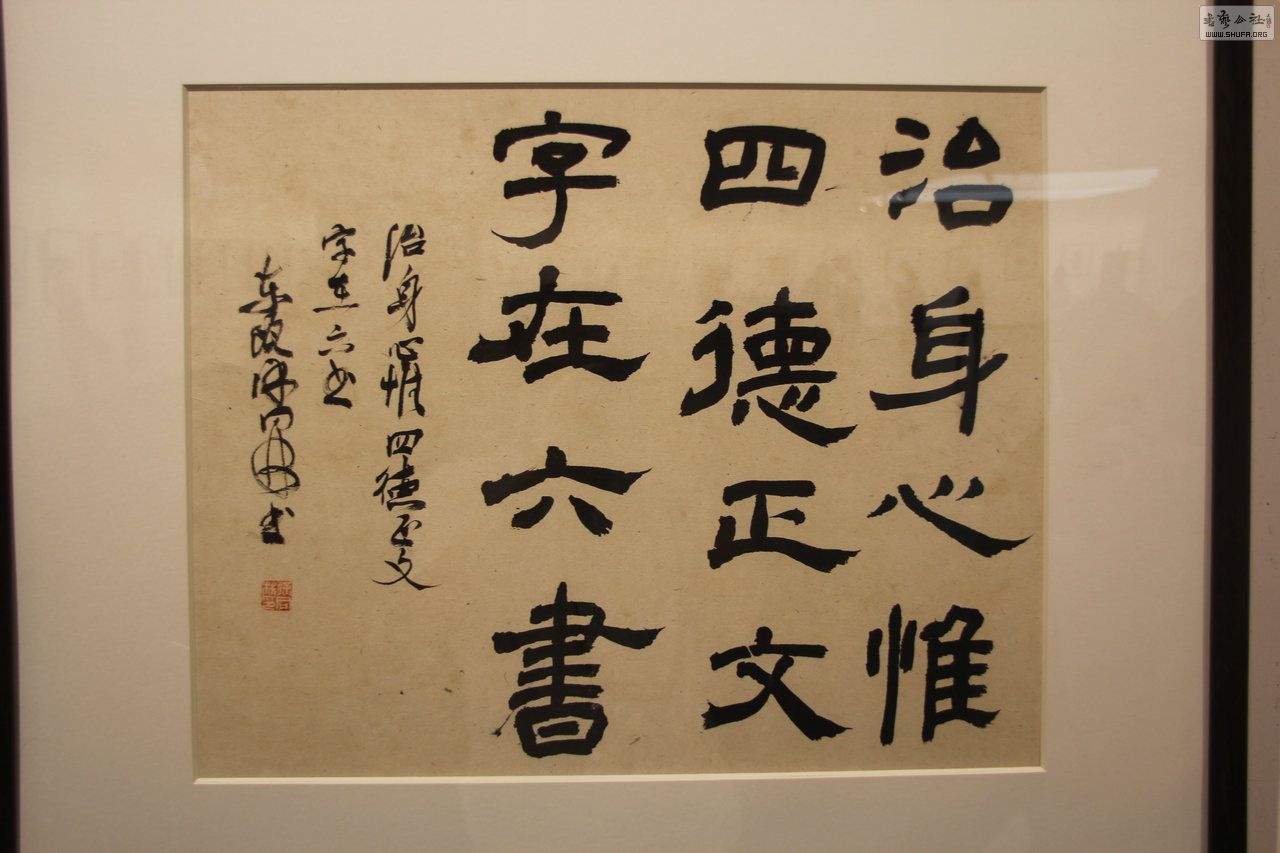 治身心惟
四德正文
字在六書
治身心惟四德正文
字在六书
书艺公社
WWW.SHUFA.ORG